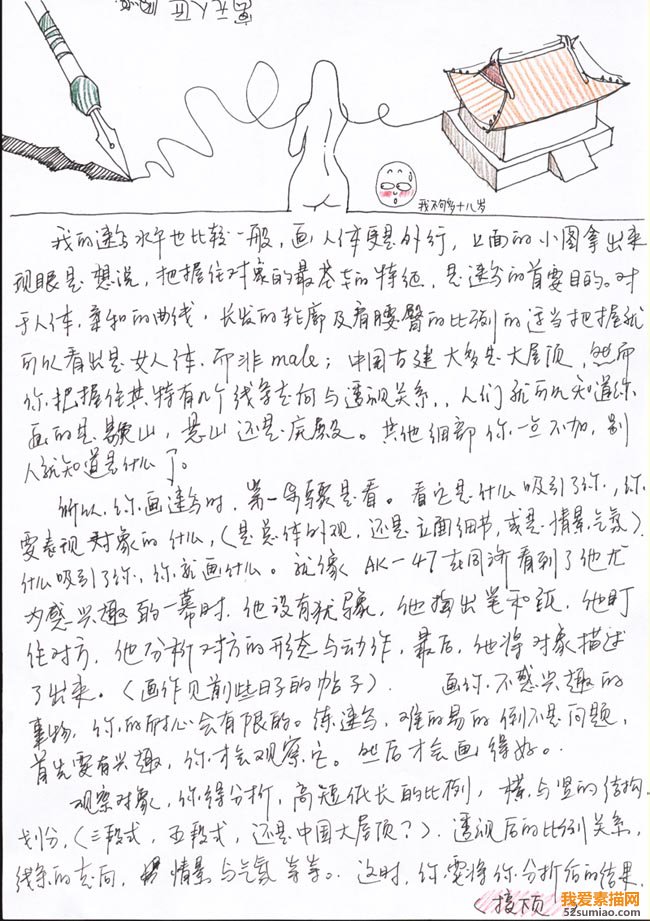 我不向多十八岁
我的速写水平也比较一般,画人体更是外行,上面的小图拿出来
现眼是想说,把握住对象的最基本的特征,是速写的首要目的。对
于人体,柔和的曲线,长发的轮廓及肩腰臀的比例的适当把握就
可以看出是女人体,而非male;中国古建大多是大屋顶,然而
你把握住其特有几个线条走向与透视关系,,人们就可以知道你
画的是歇山,悬山还是庑殿。其他细部你一点不加,别
人就知道是什么了。
所以,你画速写时,第一步骤是看。看它是什么吸引了你,你
要表现对象的什么,(是总体外观,还是立面细节,或是情景气氛).
什么吸引了你,你就画什么。就像AK-47在同济看到了他尤
为感兴趣的一幕时,他没有犹豫,他掏出笔和纸,他盯
住对方,他分析对方的形态与动作,最后,他将对象描述
了出来。(画作见前些日子的帖子). 画你不感兴趣的
事物,你的耐心会有限的。练速写,难的易的倒不是问题,
首先要有兴趣,你才会观察它。然后才会画得好。
观察对象,你得分析,高短低长的比例,横与竖的结构
划分,(三段式,五段式,还是中国大屋顶?).透视后的比例关系,
线条的走向,情景与气氛等等。这时,你要将你分析后的结果,
接下页
我爱素描网
52sumiao.com